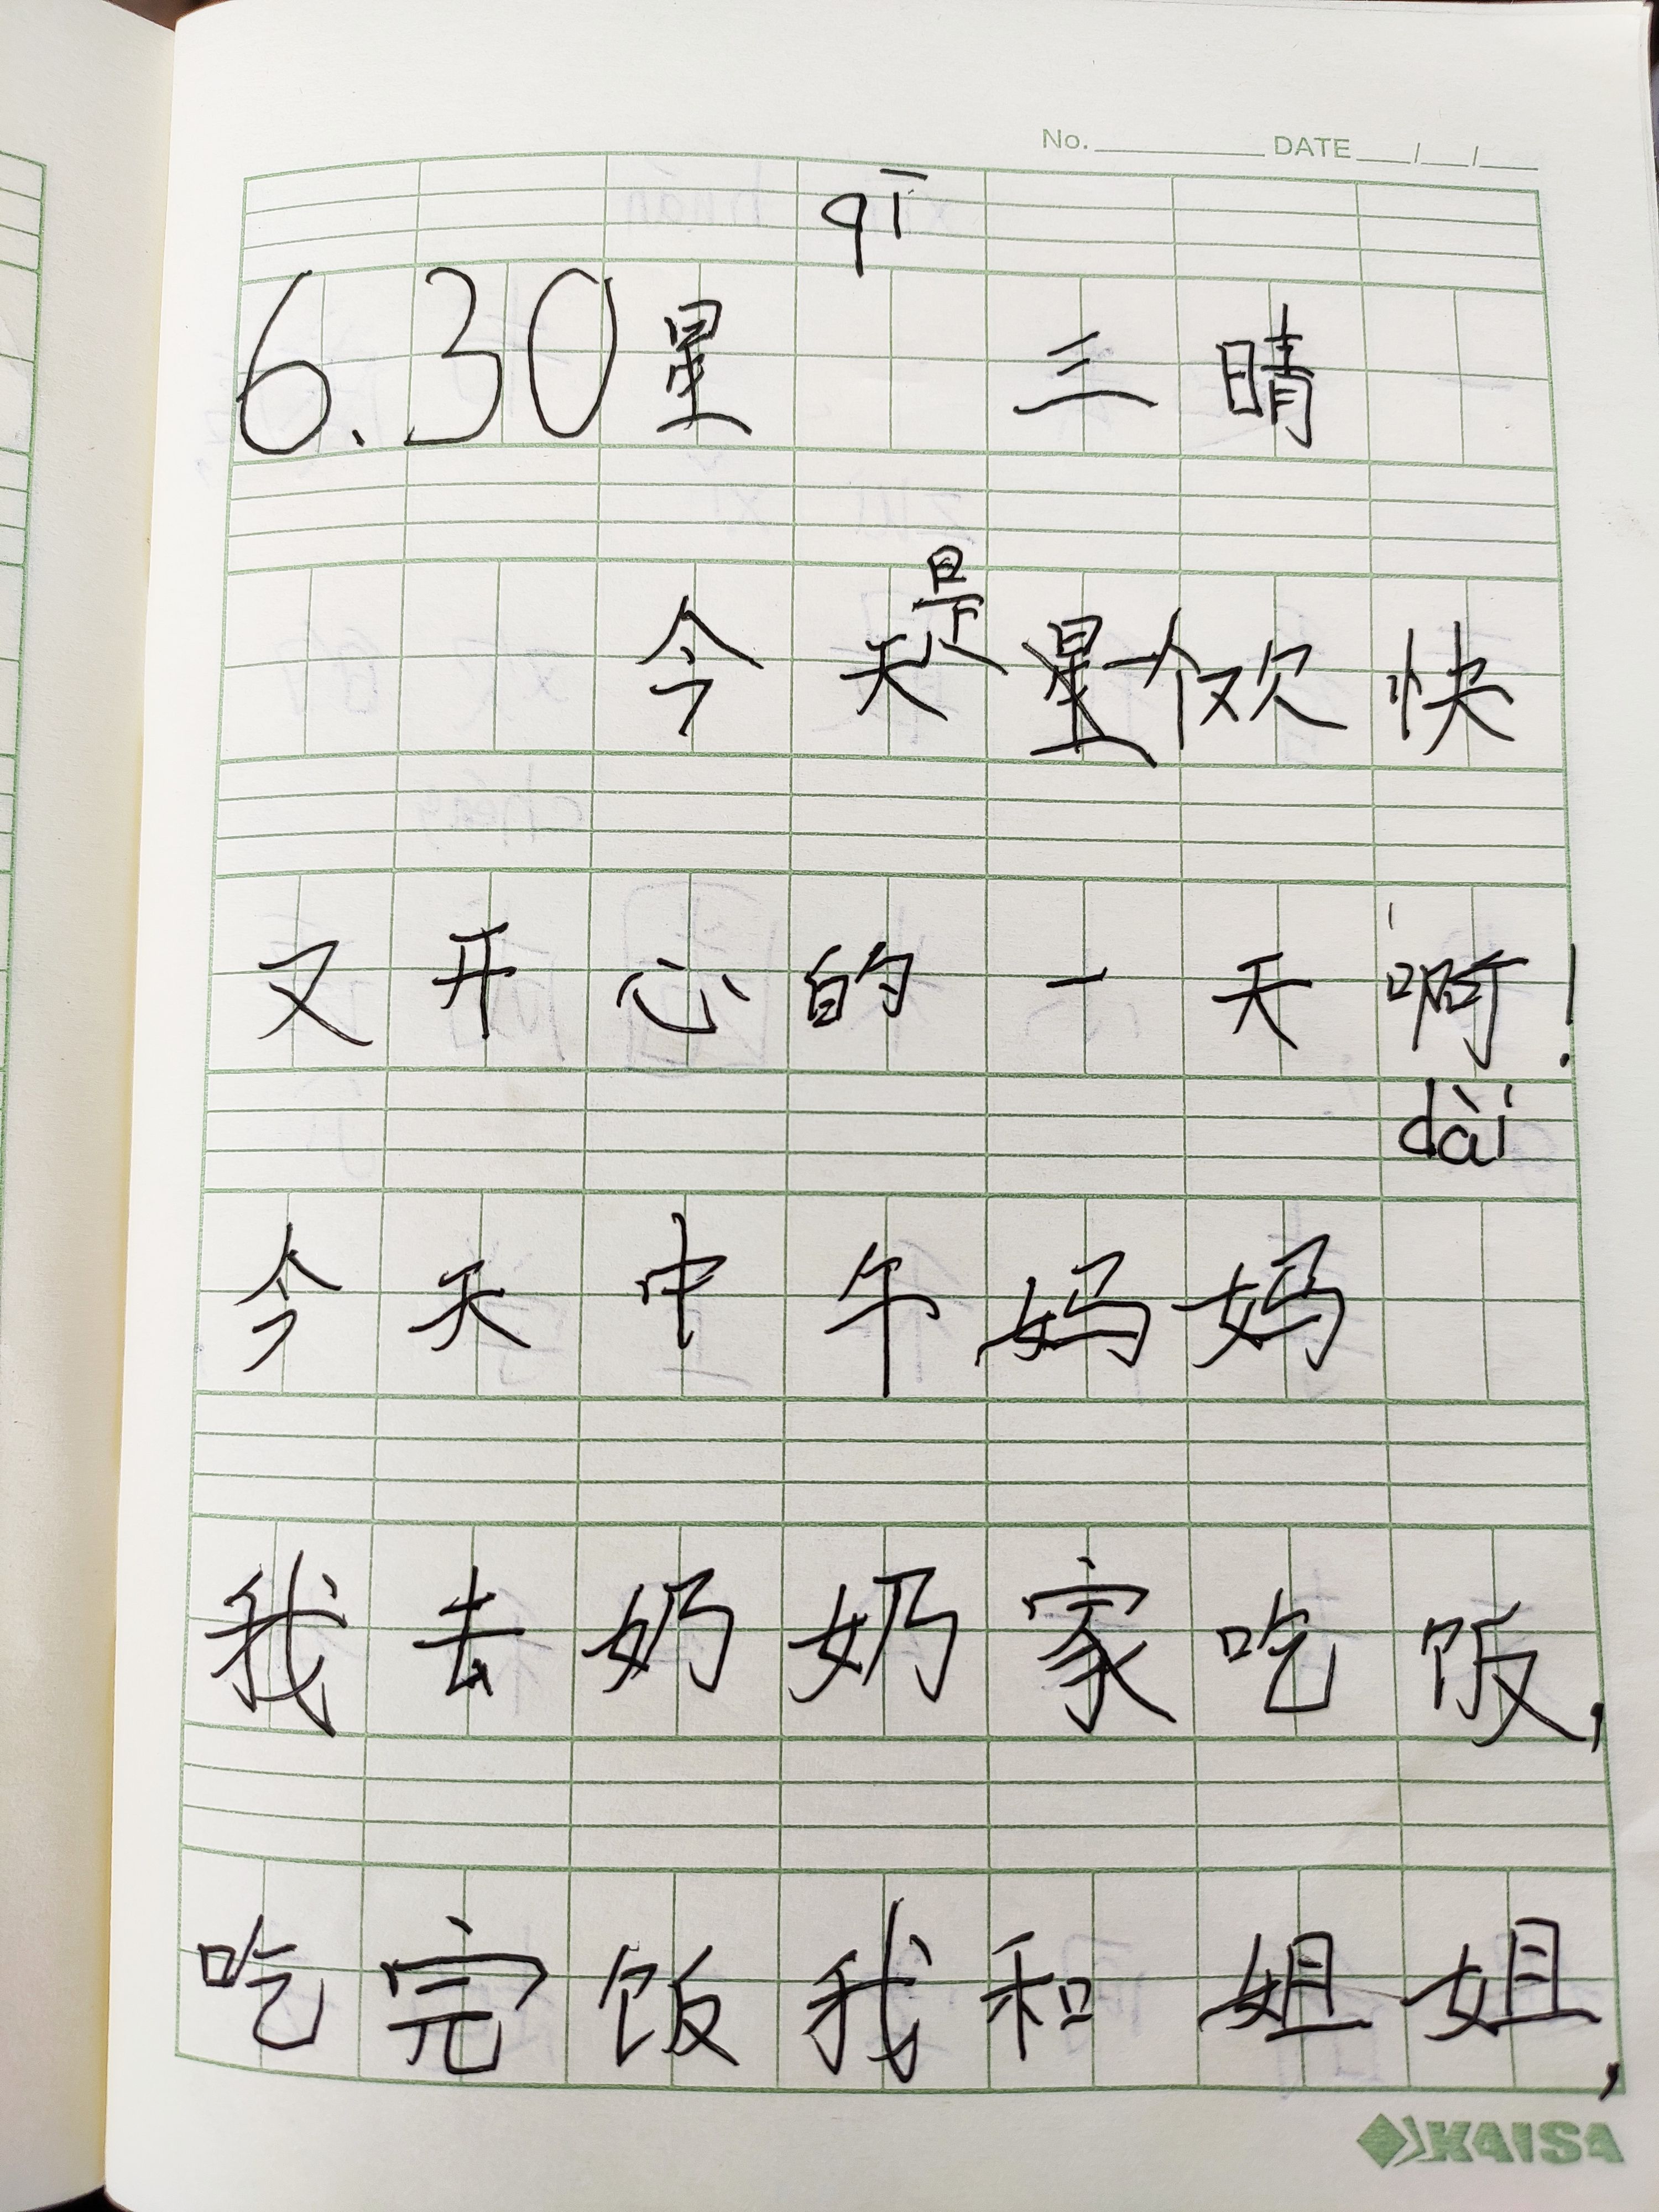 No. DATE / /
qī
6.30星 三晴
今天是个欢快
又开心的一天啊!
dài
今天中午妈妈
我去奶奶家吃饭,
吃完饭我和姐姐,
KAISA